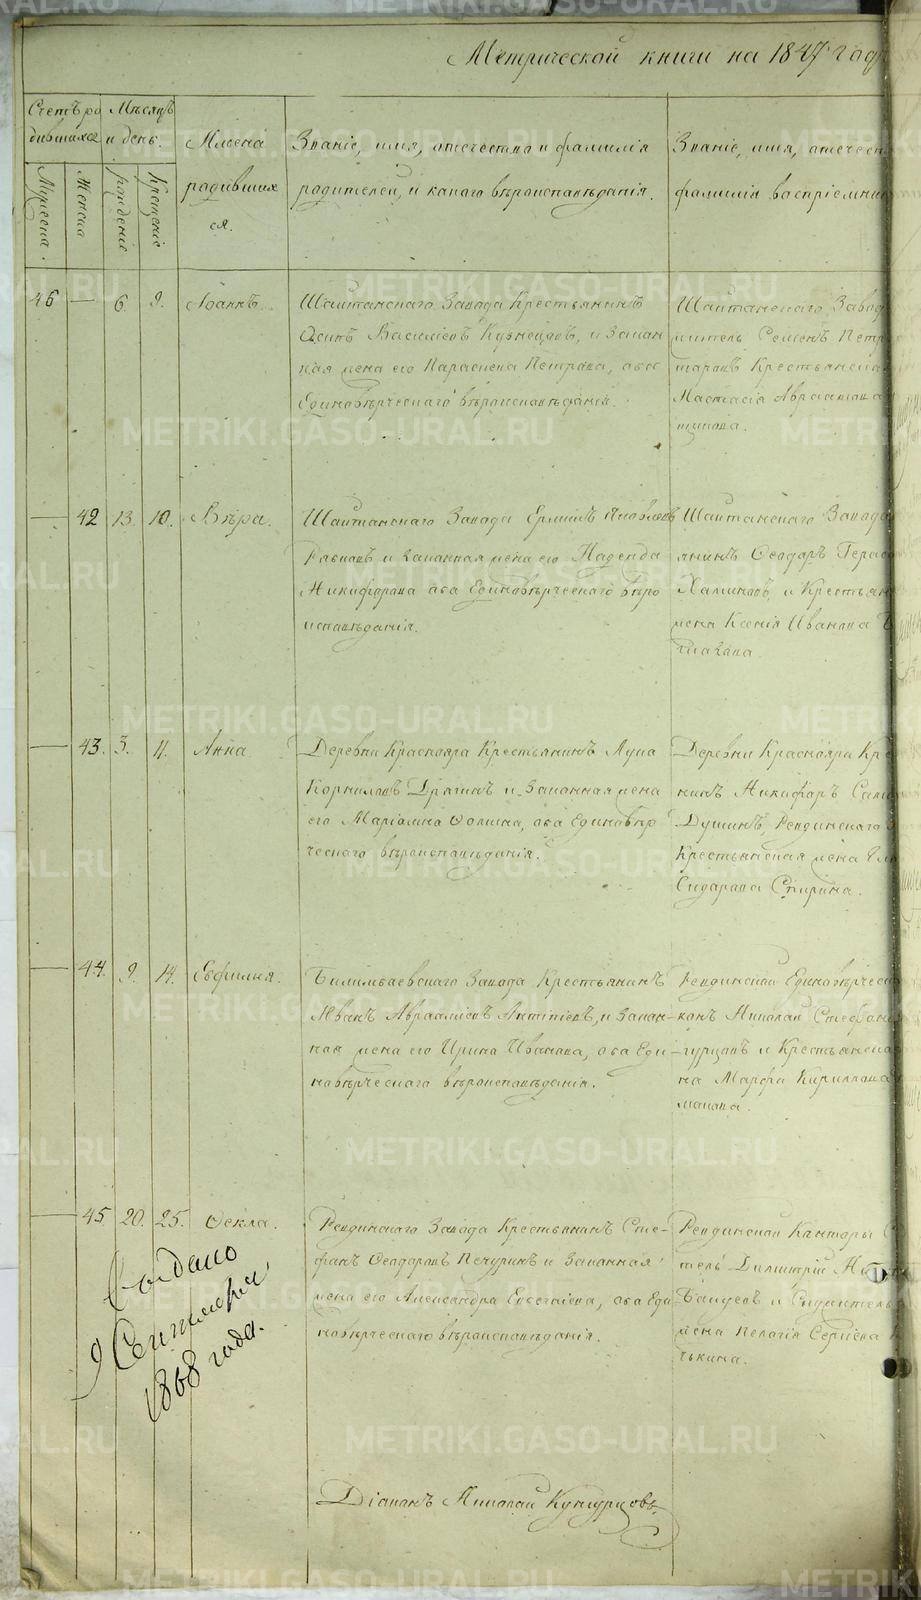 Метрической книги на 1847 год
Счетъ ро
дившихся
Мѣсяцъ
и день.
Имена
родивших
ся.
Званіе, имя, отечество и фамилія
родителей, и какого вѣроисповѣданія.
Званіе, имя, отечест
фамилія воспріемник
Мужеска.
Женска
рожденіе
Крещеніе
46 — 6 9. Іоаннъ.
Шайтанскаго Завода Крестьянинъ
Осипъ Василіевъ Кузнецовъ, и Закон
ная жена его Параскева Петрова, оба
Единовѣрческаго вѣроисповѣданія.
Шайтанскаго Завод
житель Семенъ Петр
Крестьянска
Настасія Авраамова
— 42 13. 10. Вѣра.
Шайтанскаго Завода Ермилъ Яковлевъ
и законная жена его Надежда
Никифорова оба Единовѣрческаго вѣро
исповѣданія.
Шайтанскаго Завода
янинъ Ѳеодоръ Герас
и Крестьян
жена Ксенія Иванова
— 43. 3. 11. Анна
Деревни Краснояра Крестьянинъ Лука
Корниловъ Дрягинъ и Законная жена
его Маріамна Ѳомина, оба Единовѣр
ческаго вѣроисповѣданія.
Деревни Краснояра Кре
нинъ Никифоръ
Душинъ, Ревдинскаго
Крестьянская жена
Сидарова Спирина.
— 44. 9. 14. Евфимія.
Билимбаевскаго Завода Крестьянинъ
Иванъ Аврааміевъ Антипіевъ, и Закон
ная жена его Ирина Иванова, оба Еди
новѣрческаго вѣроисповѣданія.
Ревдинской Единовѣрческ
конъ Николай Стефан
гурцовъ и Крестьянска
на Марфа Кириллова
— 45. 20. 25. Ѳекла.
Ревдинскаго Завода Крестьянинъ Сте
фанъ Ѳеодоровъ Печуринъ и Законная
жена его Александра Евсегніева, оба Еди
новѣрческаго вѣроисповѣданія.
Ревдинской Канторы
тель Димитрій
и Служитель
жена Пелагія Сергіева
Выдано
9 Сентября
1868 года.
Діаконъ Николай Кунгурцовъ.
METRIKI.GASO-URAL.RU